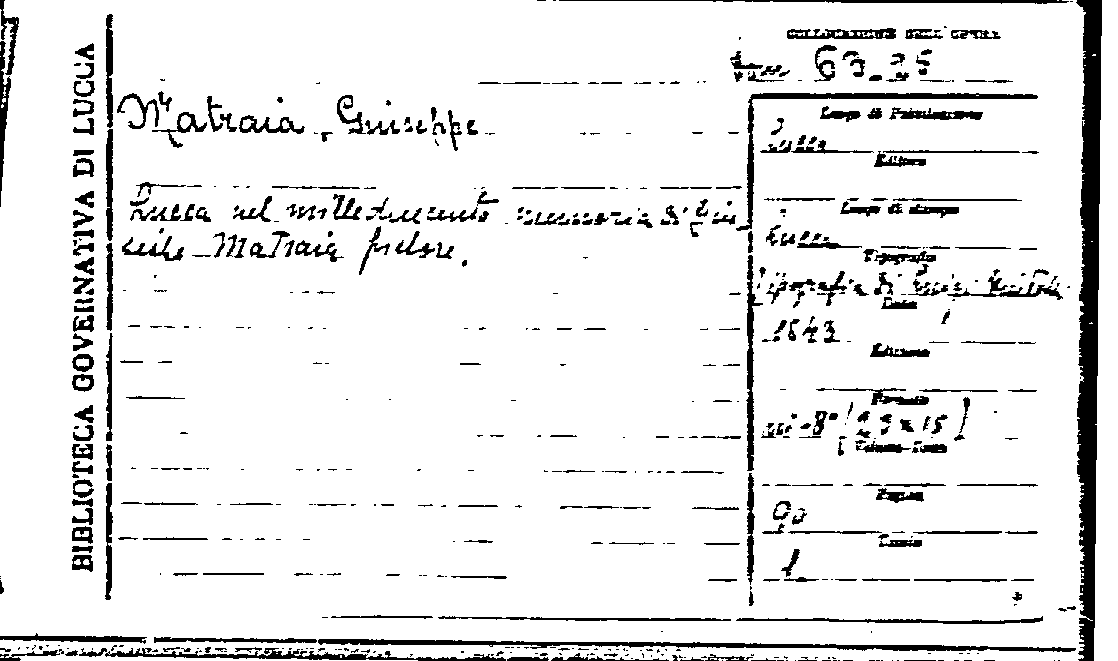 BIBLIOTECA GOVERNATIVA DI LUCCA
COLLOCAZIONE DELL'OPERA
63.25
Matraia, Giuseppe
Lucca nel milleduecento memoria di Giu-
seppe Matraia pittore.
Luogo di Pubblicazione
Lucca
Editore
Luogo di stampa
Lucca
Tipografia
Tipografia di Luigi Guidotti
Data
1843
Edizione
Formato
in-8° [23 x 15]
Volume-Tomo
Pagine
90
Tavole
1